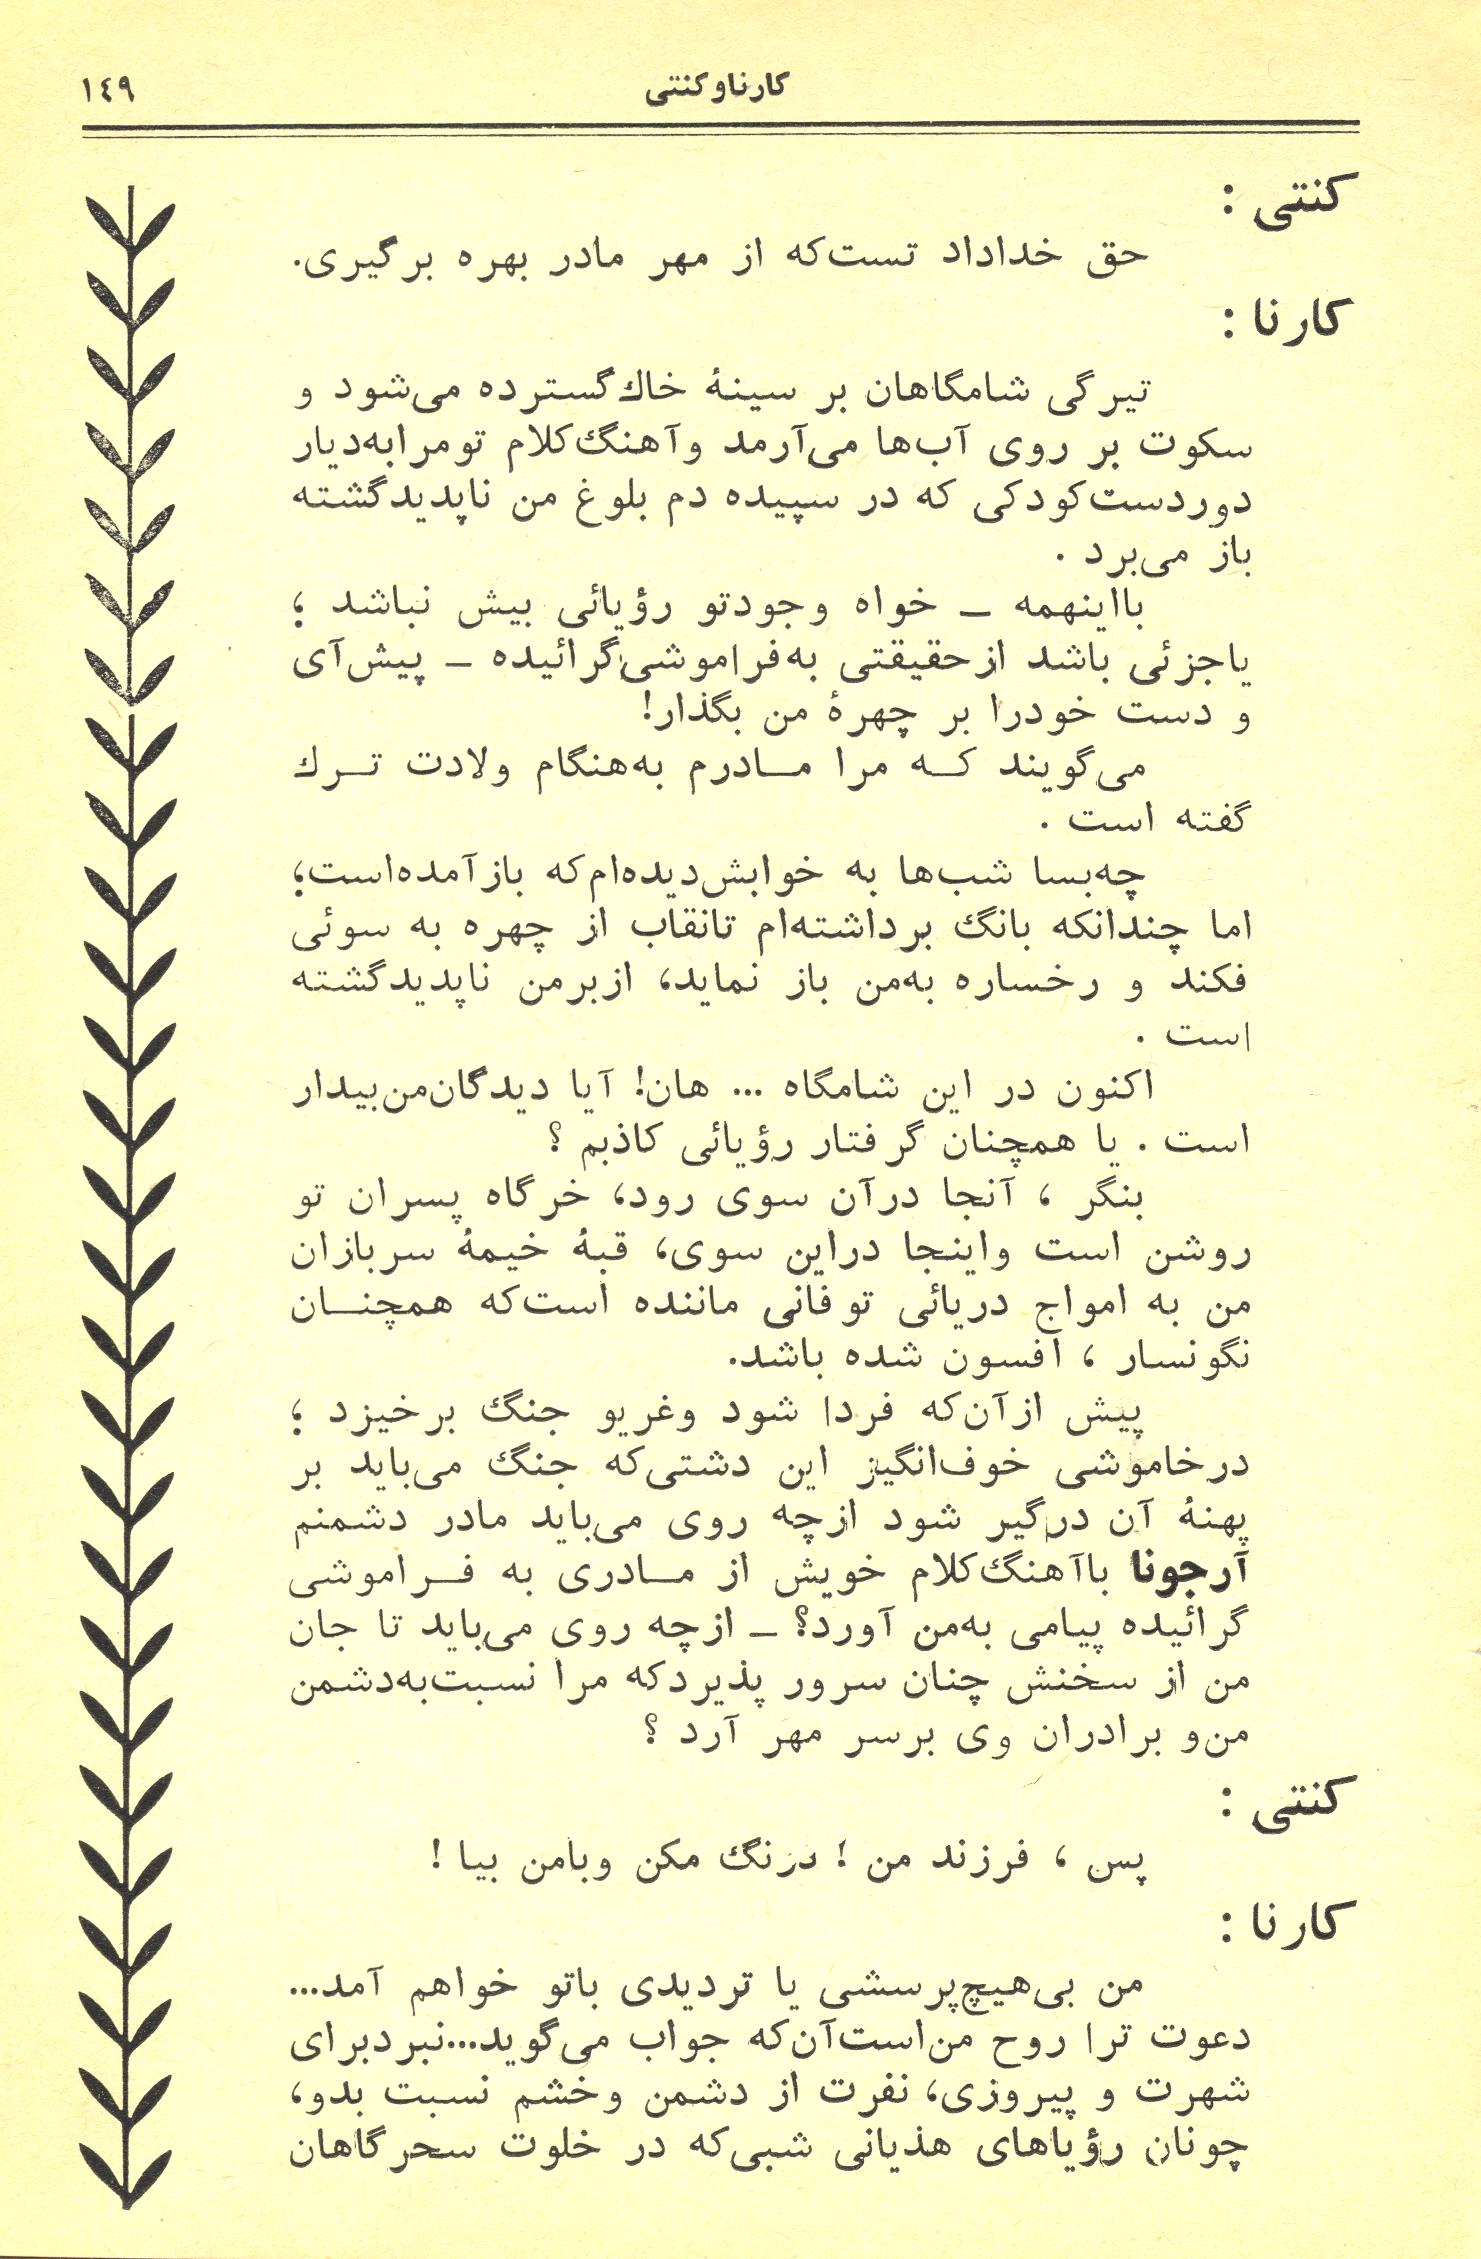 کارنا و کنتی
١٤٩
کنتی :
حق خداداد تست‌که از مهر مادر بهره برگیری.
کارنا :
تیرگی شامگاهان بر سینهٔ خاك گسترده می‌شود و
سکوت بر روی آب‌ها می‌آرمد و آهنگ‌کلام تو مرا به‌دیار
دوردست‌کودکی که در سپیده دم بلوغ من ناپدیدگشته
باز می‌برد .
بااینهمه ـ خواه وجودتو رؤیائی بیش نباشد ؛
یاجزئی باشد ازحقیقتی به‌فراموشی‌گرائیده ـ پیش‌آی
و دست خودرا بر چهرهٔ من بگذار!
می‌گویند کـه مرا مـادرم به‌هنگام ولادت تـرك
گفته است .
چه‌بسا شب‌ها به خوابش‌دیده‌ام‌که بازآمده‌است؛
اما چندانکه بانگ برداشته‌ام تانقاب از چهره به سوئی
فکند و رخساره به‌من باز نماید، ازبرمن ناپدیدگشته
است .
اکنون در این شامگاه ... هان! آیا دیدگان‌من‌بیدار
است . یا همچنان گرفتار رؤیائی کاذبم ؟
بنگر ، آنجا درآن سوی رود، خرگاه پسران تو
روشن است واینجا دراین سوی، قبهٔ خیمهٔ سربازان
من به امواج دریائی توفانی ماننده است‌که همچنـان
نگونسار ، افسون شده باشد.
پیش ازآن‌که فردا شود وغریو جنگ برخیزد ؛
درخاموشی خوف‌انگیز این دشتی‌که جنگ می‌باید بر
پهنهٔ آن درگیر شود ازچه روی می‌باید مادر دشمنم
آرجونا باآهنگ‌کلام خویش از مـادری به فـراموشی
گرائیده پیامی به‌من آورد؟ ـ ازچه روی می‌باید تا جان
من از سخنش چنان سرور پذیردکه مرا نسبت‌به‌دشمن
من‌و برادران وی برسر مهر آرد ؟
کنتی :
پس ، فرزند من ! درنگ مکن وبامن بیا !
کارنا :
من بی‌هیچ‌پرسشی یا تردیدی باتو خواهم آمد...
دعوت ترا روح من‌است‌آن‌که جواب می‌گوید...نبردبرای
شهرت و پیروزی، نفرت از دشمن وخشم نسبت بدو،
چونان رؤیاهای هذیانی شبی‌که در خلوت سحرگاهان